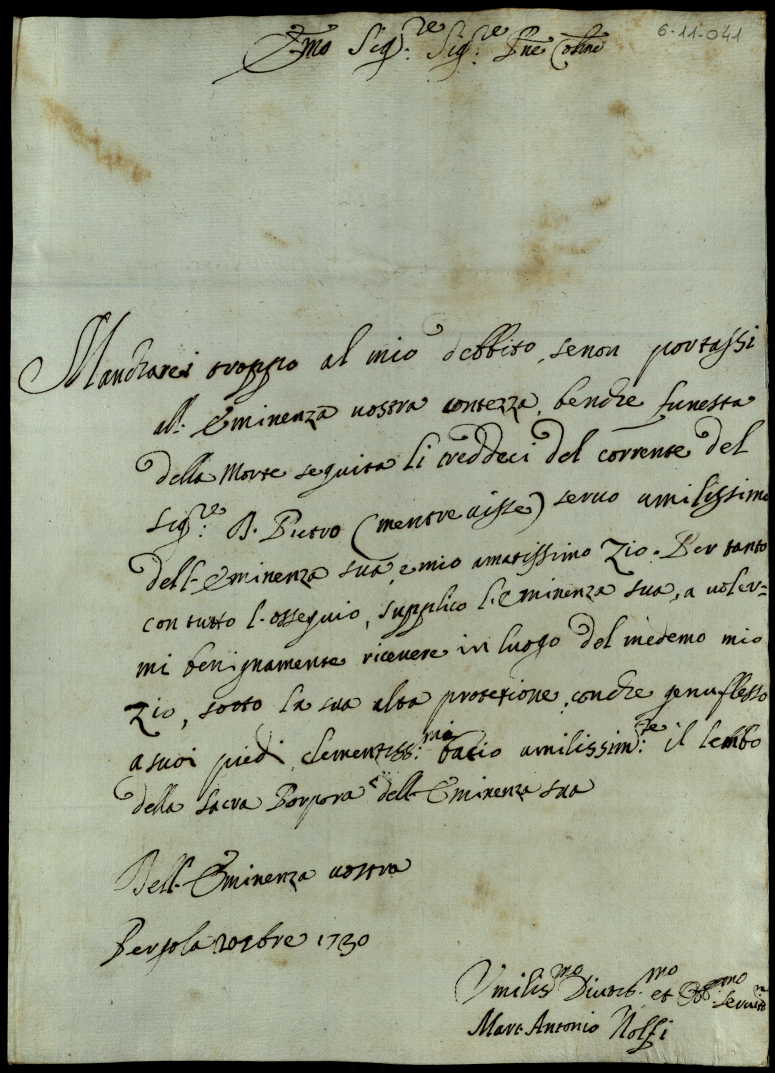 6-11-041
Em̃o Sig.re Sig.re Pñe Colm̃o
Mancharei troppo al mio debbito, se non portassi
all'Eminenza vostra contezza, benche funesta
della Morte seguita li treddeci del corrente del
Sig.re D. Pietro (mentre visse) servo umilissimo
dell'Eminenza sua, e mio amatissimo Zio. Per tanto
con tutto l'ossequio, supplico l'Eminenza sua, a voler=
mi benignamente ricevere in luogo del medemo mio
Zio, sotto la sua alta protezione, con che genuflesso
a suoi piedi clementiss:mi bacio umilissim:te il lembo
della Sacra Porpora dell'Eminenza sua
Dell'Eminenza vostra
Pergola 20 9bre 1730
Vmilis.mo Divot.mo et Obb.mo Servit.
Marc Antonio Nolfi